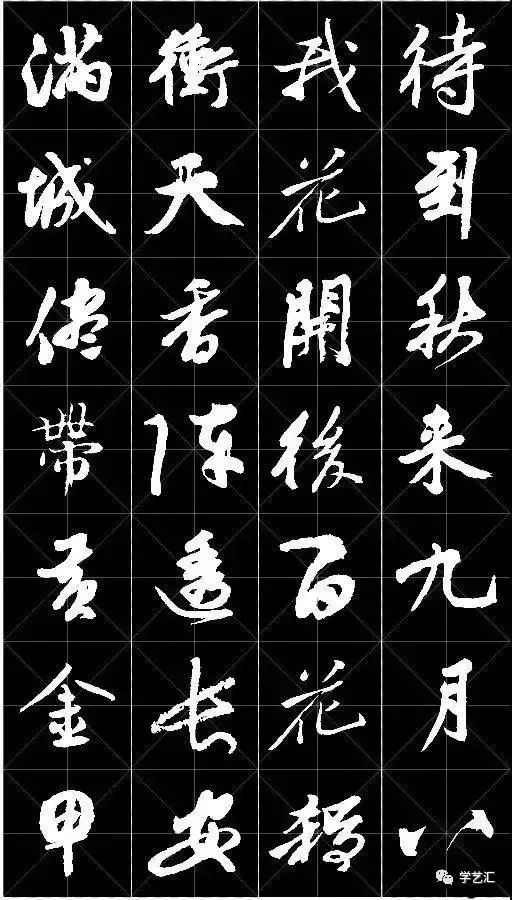 待到秋来九月八
我花開後百花殺
衝天香阵透长安
满城儘帶黄金甲
学艺汇